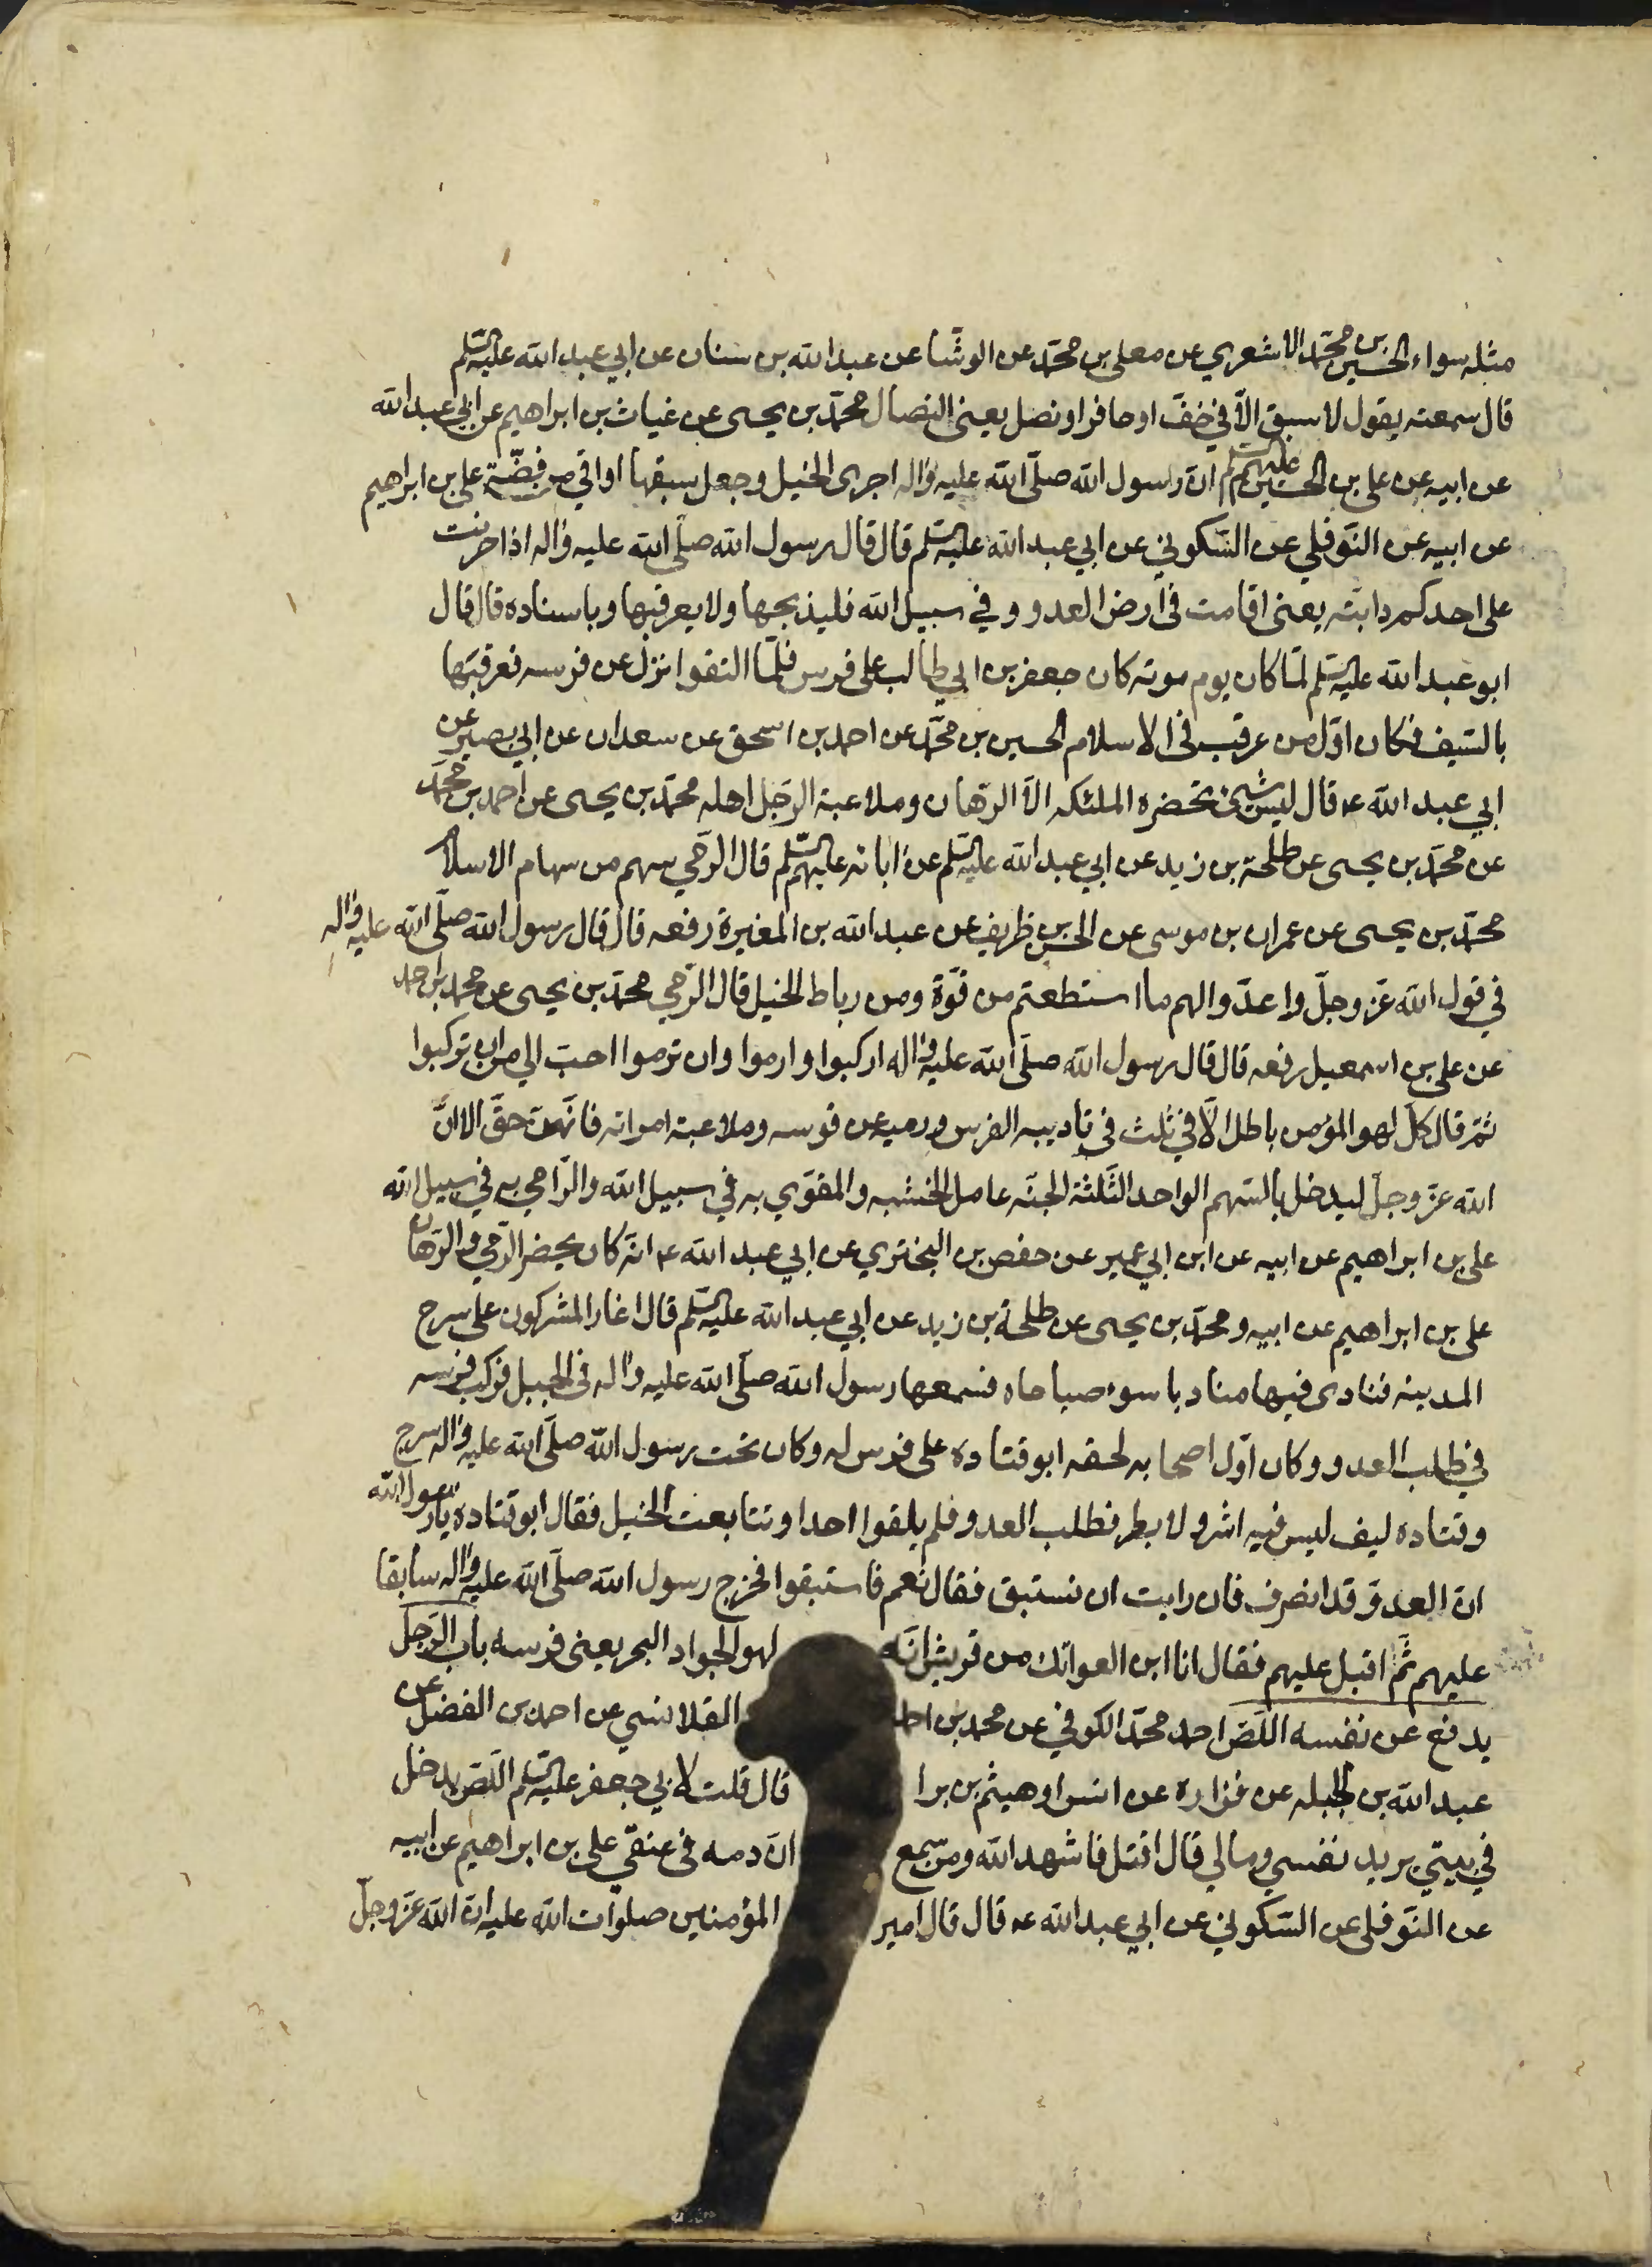 مثله سواء الحسين بن محمّد الاشعري عن معلى بن محمّد عن الوشّا عن عبد الله بن سنان عن ابي عبد الله عليه السّلم
قال سمعته يقول لا سبق الّا في خفّ او حافر او نصل يعنى النصال محمّد بن يحيى عن غياث بن ابراهيم عن ابي عبد الله
عن ابيه عن على بن الحسين عليهم السّلم انّ رسول الله صلّى الله عليه واله اجرى الخيل وجعل سبقها اواقي من فضّة على بن ابراهيم
عن ابيه عن النّوفلي عن السّكوني عن ابي عبد الله عليه السّلم قال قال رسول الله صلّى الله عليه واله اذا حرنت
على احدكم دابّته يعنى اقامت في ارض العدو وفي سبيل الله فليذبحها ولا يعرقبها وباسناده قال قال
ابو عبد الله عليه السّلم لمّا كان يوم موته كان جعفر بن ابي طالب على فرس فلمّا التقوا نزل عن فرسه فعرقبها
بالسّيف فكان اوّل من عرقب في الاسلام الحسين بن محمّد عن احمد بن اسحق عن سعدان عن ابي بصير عن
ابي عبد الله ع قال ليس شئ تحضره الملئكه الّا الرّهان وملاعبة الرّجل اهله محمّد بن يحيى عن احمد بن محمّد
عن محمّد بن يحيى عن طلحة بن زيد عن ابي عبد الله عليه السّلم عن ابائه عليهم السّلم قال الرّمي سهم من سهام الاسلام
محمّد بن يحيى عن عمران بن موسى عن الحسن بن ظريف عن عبد الله بن المغيرة رفعه قال قال رسول الله صلّى الله عليه واله
في قول الله عزّ وجلّ واعدّوا لهم ما استطعتم من قوّة ومن رباط الخيل قال الرّمي محمّد بن يحيى عن محمد بن احمد
عن على بن اسمعيل رفعه قال قال رسول الله صلّى الله عليه واله اركبوا وارموا وان ترموا احبّ الي من ان تركبوا
ثمّ قال كلّ لهو المؤمن باطل الّا في ثلث في تاديبه الفرس ورميه عن قوسه وملاعبة امراته فانّهنّ حقّ الا انّ
الله عزّ وجلّ ليدخل بالسّهم الواحد الثّلثة الجنّه عامل الخشبه والمقوّي به في سبيل الله والرّامي به في سبيل الله
على بن ابراهيم عن ابيه عن ابن ابي عمير عن حفص بن البختري عن ابي عبد الله ع انّه كان يحضر الرّمي والرّهان
على بن ابراهيم عن ابيه ومحمّد بن يحيى عن طلحة بن زيد عن ابي عبد الله عليه السّلم قال اغار المشركون على سرح
المدينه فنادى فيها مناد يا سوء صباحاه فسمعها رسول الله صلّى الله عليه واله في الجبل فركب فرسه
في طلب العدو وكان اوّل اصحابه لحقه ابو قتاده على فرس له وكان تحت رسول الله صلّى الله عليه واله سرج
وقتاده ليف ليس فيه اشر ولا بطر فطلب العدو فلم يلقوا احدا وتتابعت الخيل فقال ابو قتاده يا رسول الله
انّ العدوّ قد انصرف فان رايت ان نستبق فقال نعم فاستبقوا فخرج رسول الله صلّى الله عليه واله سابقا
عليهم ثمّ اقبل عليهم فقال انا ابن العواتك من قريش انّه لهو الجواد البحر يعنى فرسه باب الرّجل
يدفع عن نفسه اللّصّ احمد محمّد الكوفي عن محمد بن احمد القلانسي عن احمد بن الفضل عن
عبد الله بن الجبله عن فزاره عن انس او هيثم بن برا قال قلت لابي جعفر عليه السّلم اللّصّ يدخل
في بيتي يريد نفسي ومالي قال اقتل فاشهد الله ومن سمع انّ دمه في عنقي على بن ابراهيم عن ابيه
عن النّوفلى عن السّكوني عن ابي عبد الله ع قال قال امير المؤمنين صلوات الله عليه انّ الله عزّ وجلّ